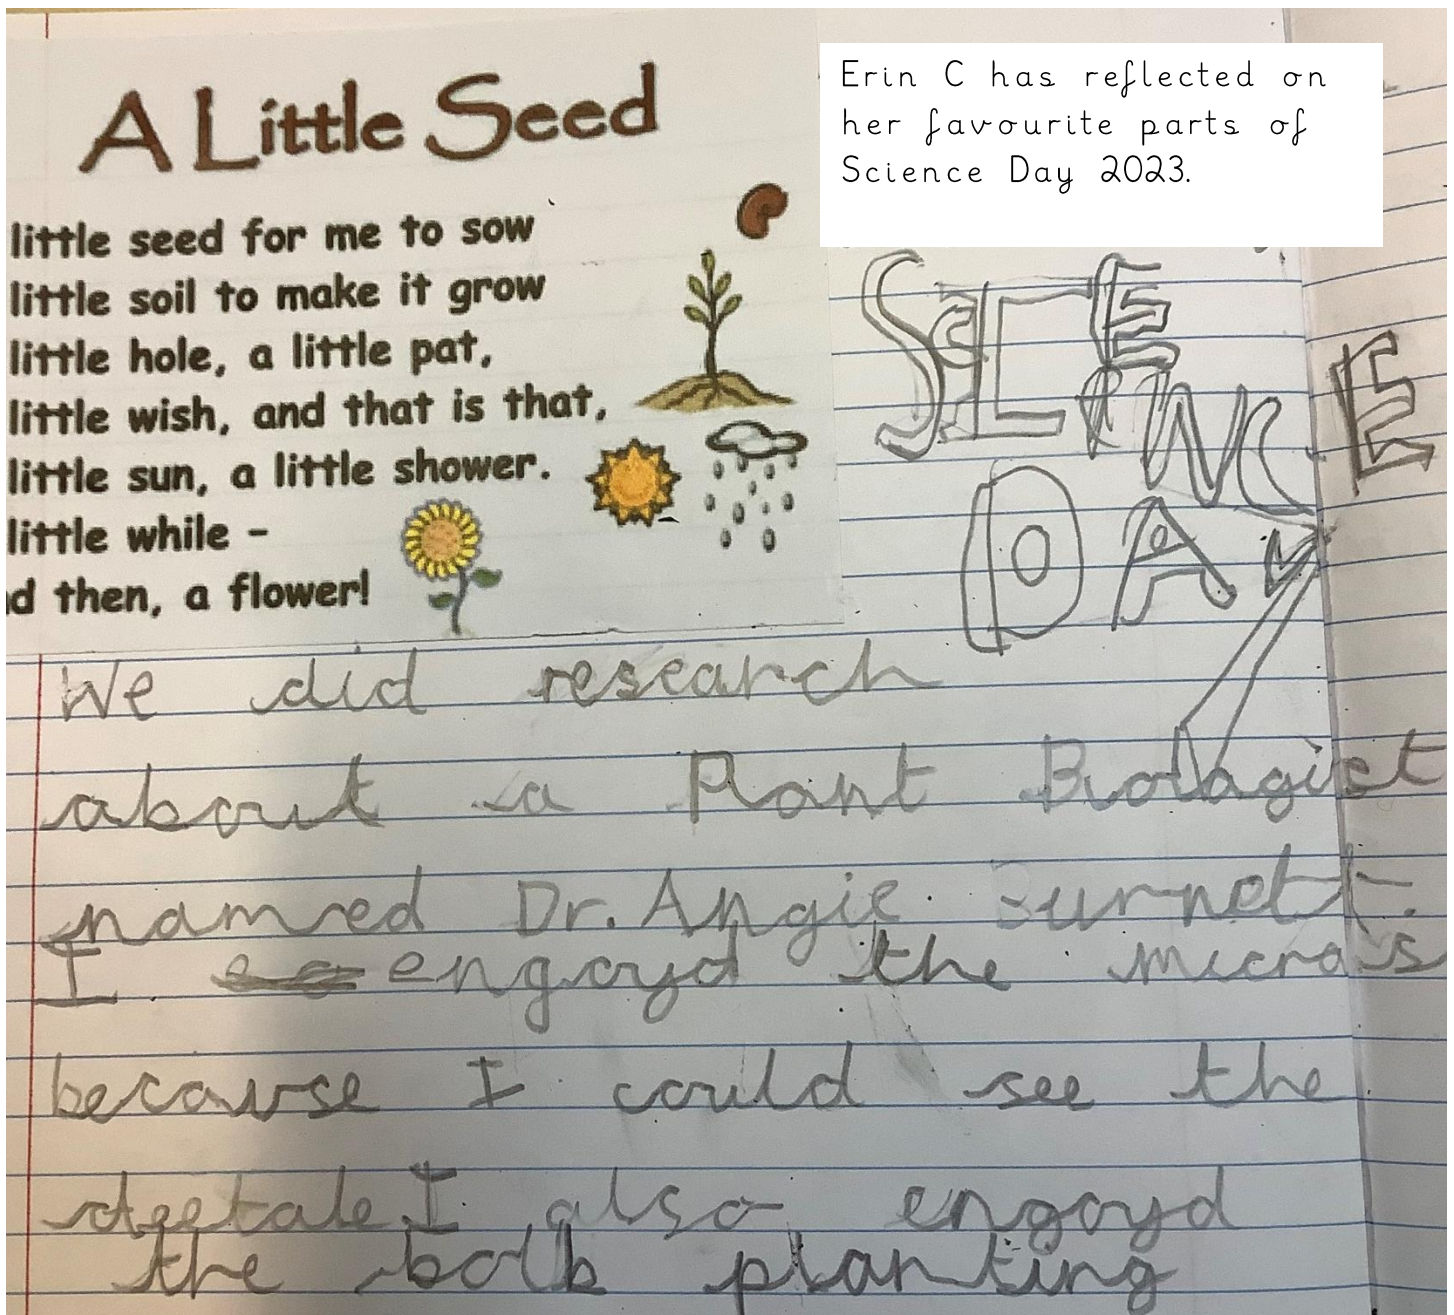 A Little Seed
little seed for me to sow
little soil to make it grow
little hole, a little pat,
little wish, and that is that,
little sun, a little shower.
little while -
d then, a flower!
Erin C has reflected on
her favourite parts of
Science Day 2023.
SCIENCE
DAY
We did research
about a Plant Biologist
named Dr. Angie Burnett.
I engoyd the micros
because I could see the
deetale I also engoyd
the bolb planting